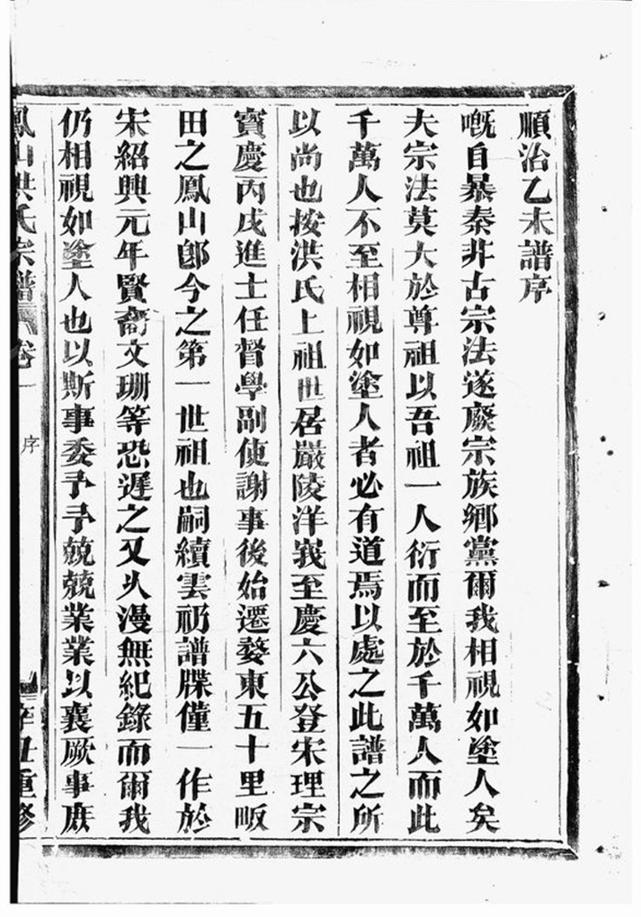 順治乙未譜序
嘅自暴秦非古宗法遂廢宗族鄉黨爾我相視如塗人矣
夫宗法莫大於尊祖以吾祖一人衍而至於千萬人而此
千萬人不至相視如塗人者必有道焉以處之此譜之所
以尚也按洪氏上祖世居嚴陵洋峩至慶六公登宋理宗
寶慶丙戌進士任督學副使謝事後始遷婺東五十里畈
田之鳳山卽今之第一世祖也嗣續雲礽譜牒僅一作於
宋紹興元年賢裔文珊等恐遲之又久漫無紀錄而爾我
仍相視如塗人也以斯事委予予兢兢業業以襄厥事庶
鳳山洪氏宗譜 卷一 序 辛丑重修